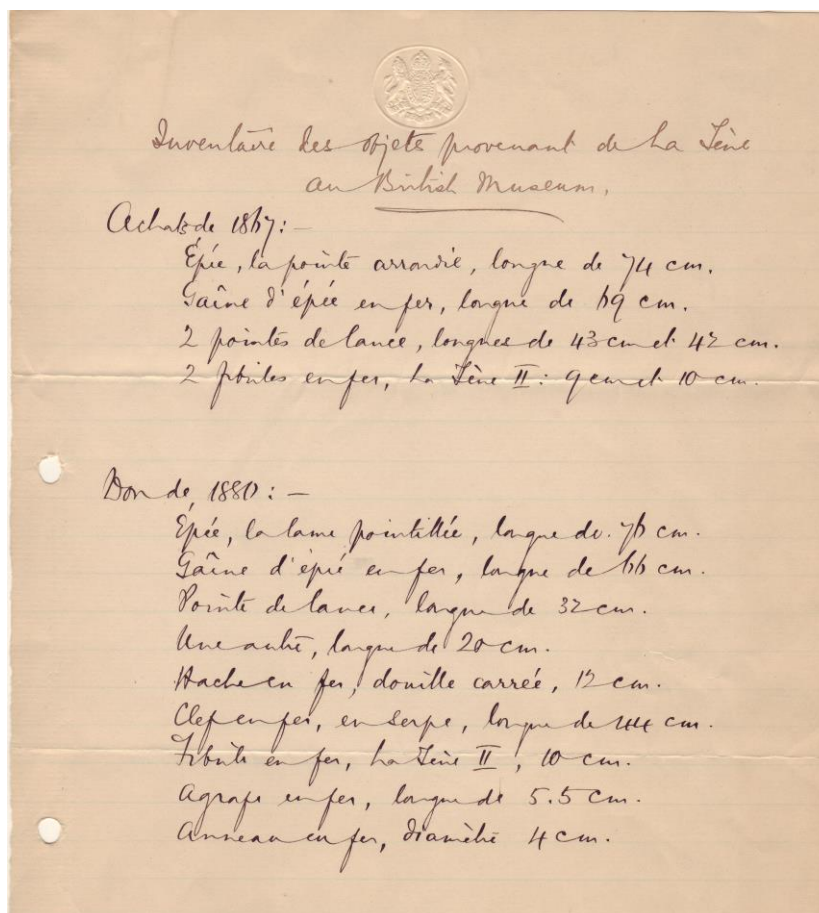 Inventaire des objets provenant de La Tène
au British Museum.
Achats de 1867: —
Épée, la pointe arrondie, longue de 74 cm.
Gaîne d'épée en fer, longue de 69 cm.
2 pointes de lance, longues de 43 cm et 42 cm.
2 fibules en fer, La Tène II: 9 cm et 10 cm.
Don de 1880: —
Épée, la lame pointillée, longue de 76 cm.
Gaîne d'épée en fer, longue de 66 cm.
Pointe de lance, longue de 32 cm.
Une autre, longue de 20 cm.
Hache en fer, douille carrée, 12 cm.
Clef en fer, en serpe, longue de 44 cm.
Fibule en fer, La Tène II, 10 cm.
Agrafe en fer, longue de 5.5 cm.
Anneau en fer, diamètre 4 cm.